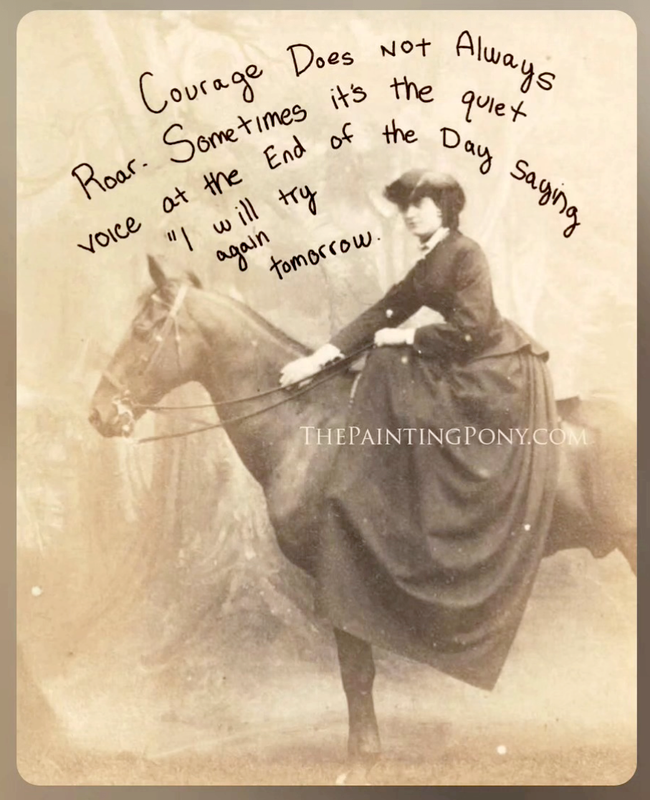 Courage Does Not Always
Roar. Sometimes it's the quiet
voice at the End of the Day saying
"I will try
again
tomorrow.
ThePaintingPony.com